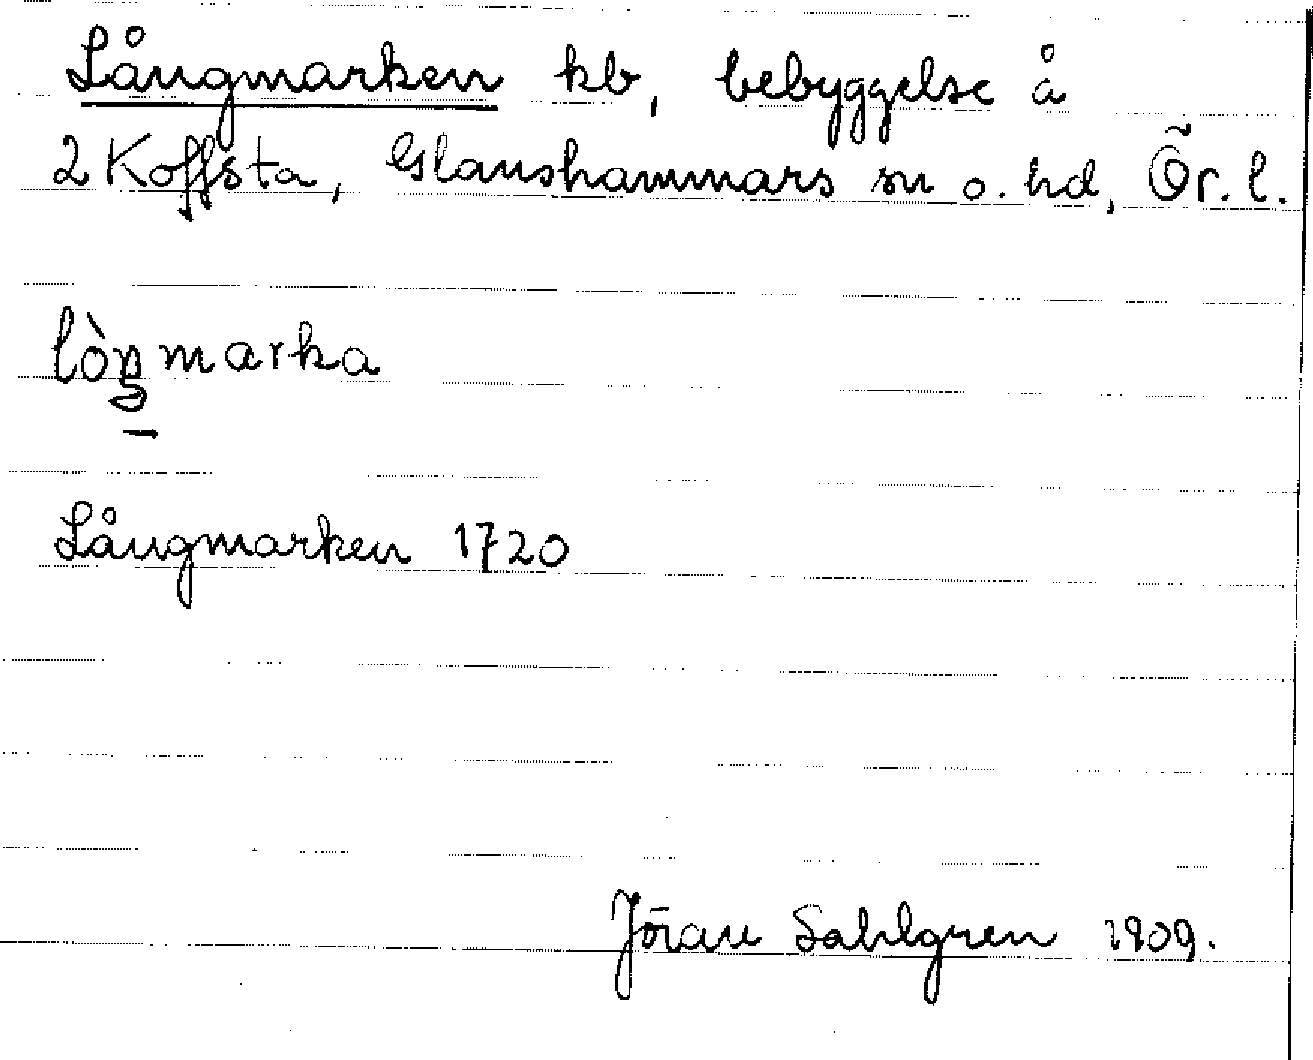 Långmarken kb, bebyggelse å
2 Koffsta, Glanshammars sn o. hd, Ör. l.
lòŋmarka
Långmarken 1720
Jöran Sahlgren 1909.